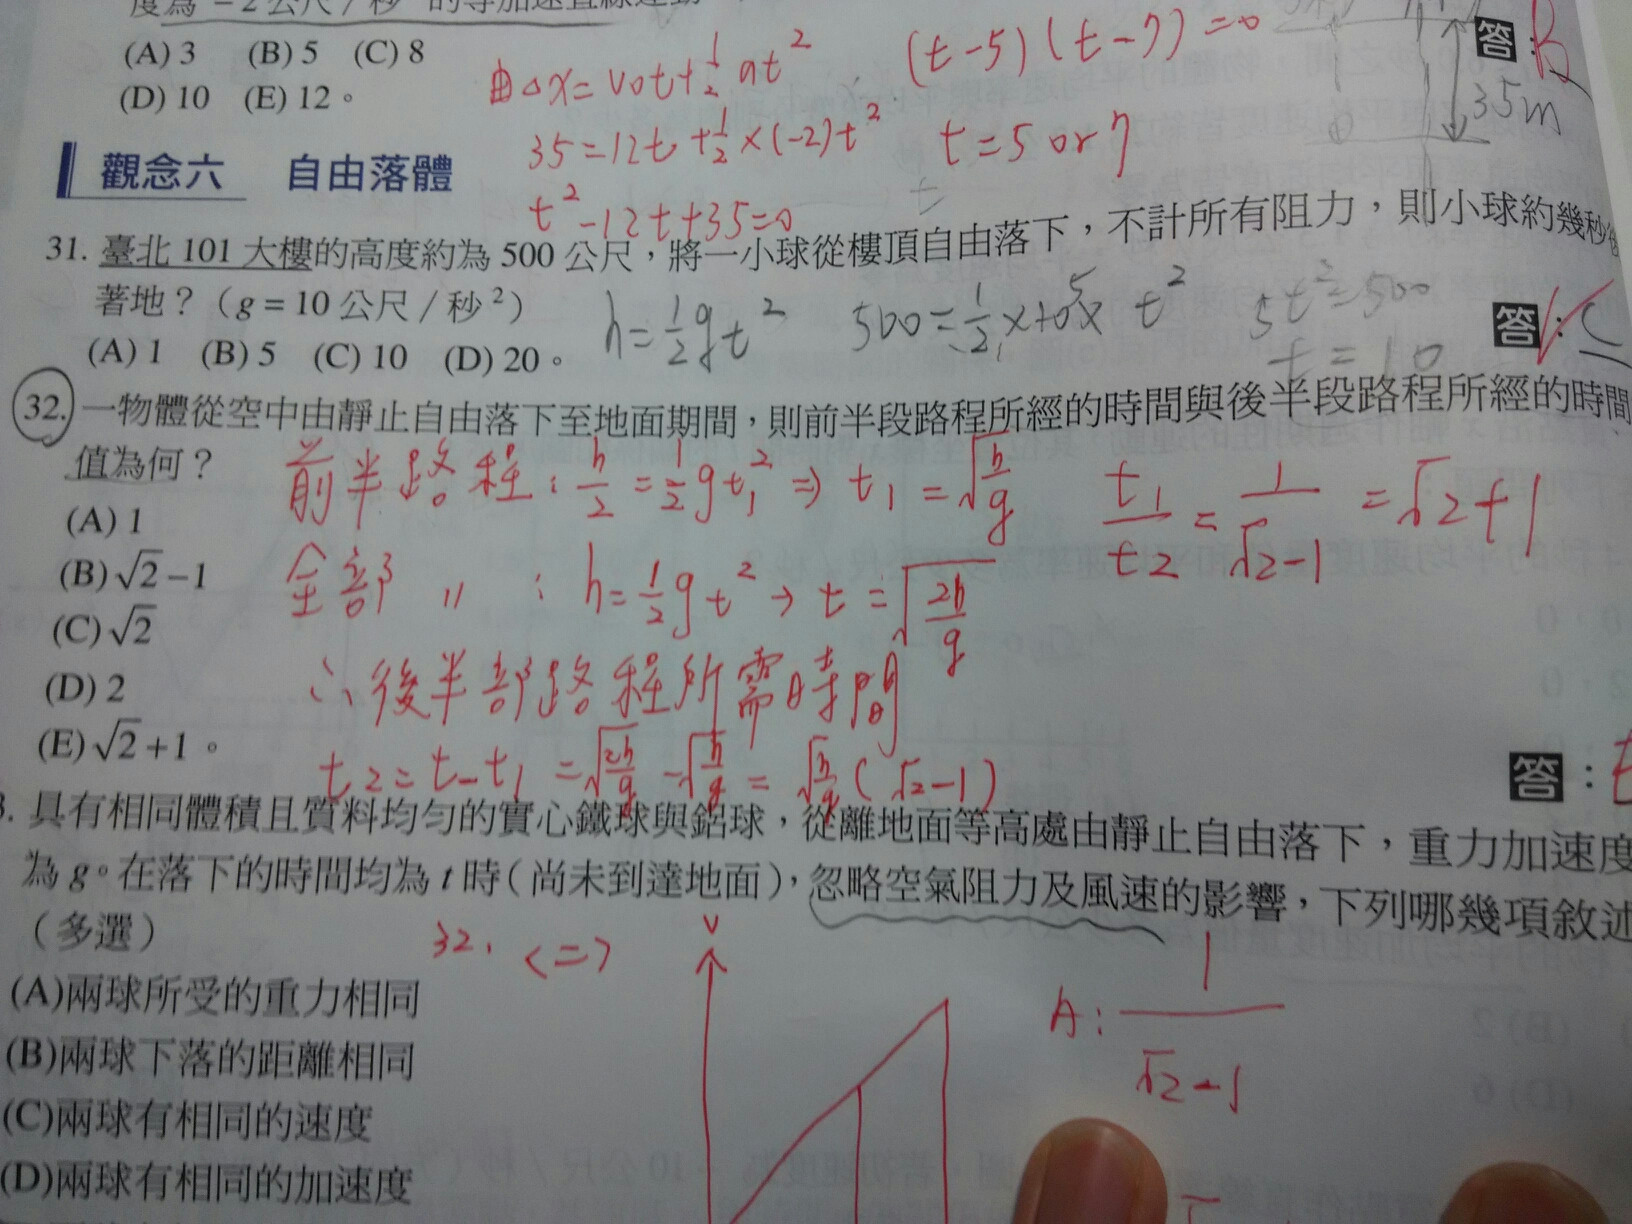 度為 −2 公尺／秒² 的等加速直線運動
(A) 3 (B) 5 (C) 8
(D) 10 (E) 12。
由△x=v₀t+½at²
35=12t+½×(-2)t²
t²-12t+35=0
(t-5)(t-7)=0
t=5 or 7
答：B
35m
觀念六 自由落體
31. 臺北 101 大樓的高度約為 500 公尺，將一小球從樓頂自由落下，不計所有阻力，則小球約幾秒後
著地？（g = 10 公尺／秒²）
(A) 1 (B) 5 (C) 10 (D) 20。
h=½gt² 500=½×10×t² 5
5t²=500
t=10
答：C
32. 一物體從空中由靜止自由落下至地面期間，則前半段路程所經的時間與後半段路程所經的時間
值為何？
(A) 1
(B) √2−1
(C) √2
(D) 2
(E) √2+1。
前半路程：h/2=½gt₁² ⇒ t₁=√(h/g)
全部〃：h=½gt² → t=√(2h/g)
∴後半部路程所需時間
t₂=t-t₁=√(2h/g)-√(h/g)=√(h/g)(√2-1)
t₁/t₂=1/(√2-1)=√2+1
答：E
3. 具有相同體積且質料均勻的實心鐵球與鋁球，從離地面等高處由靜止自由落下，重力加速度
為 g。在落下的時間均為 t 時（尚未到達地面），忽略空氣阻力及風速的影響，下列哪幾項敘述
（多選）
(A)兩球所受的重力相同
(B)兩球下落的距離相同
(C)兩球有相同的速度
(D)兩球有相同的加速度
32. <二>
v
A: 1/(√2-1)